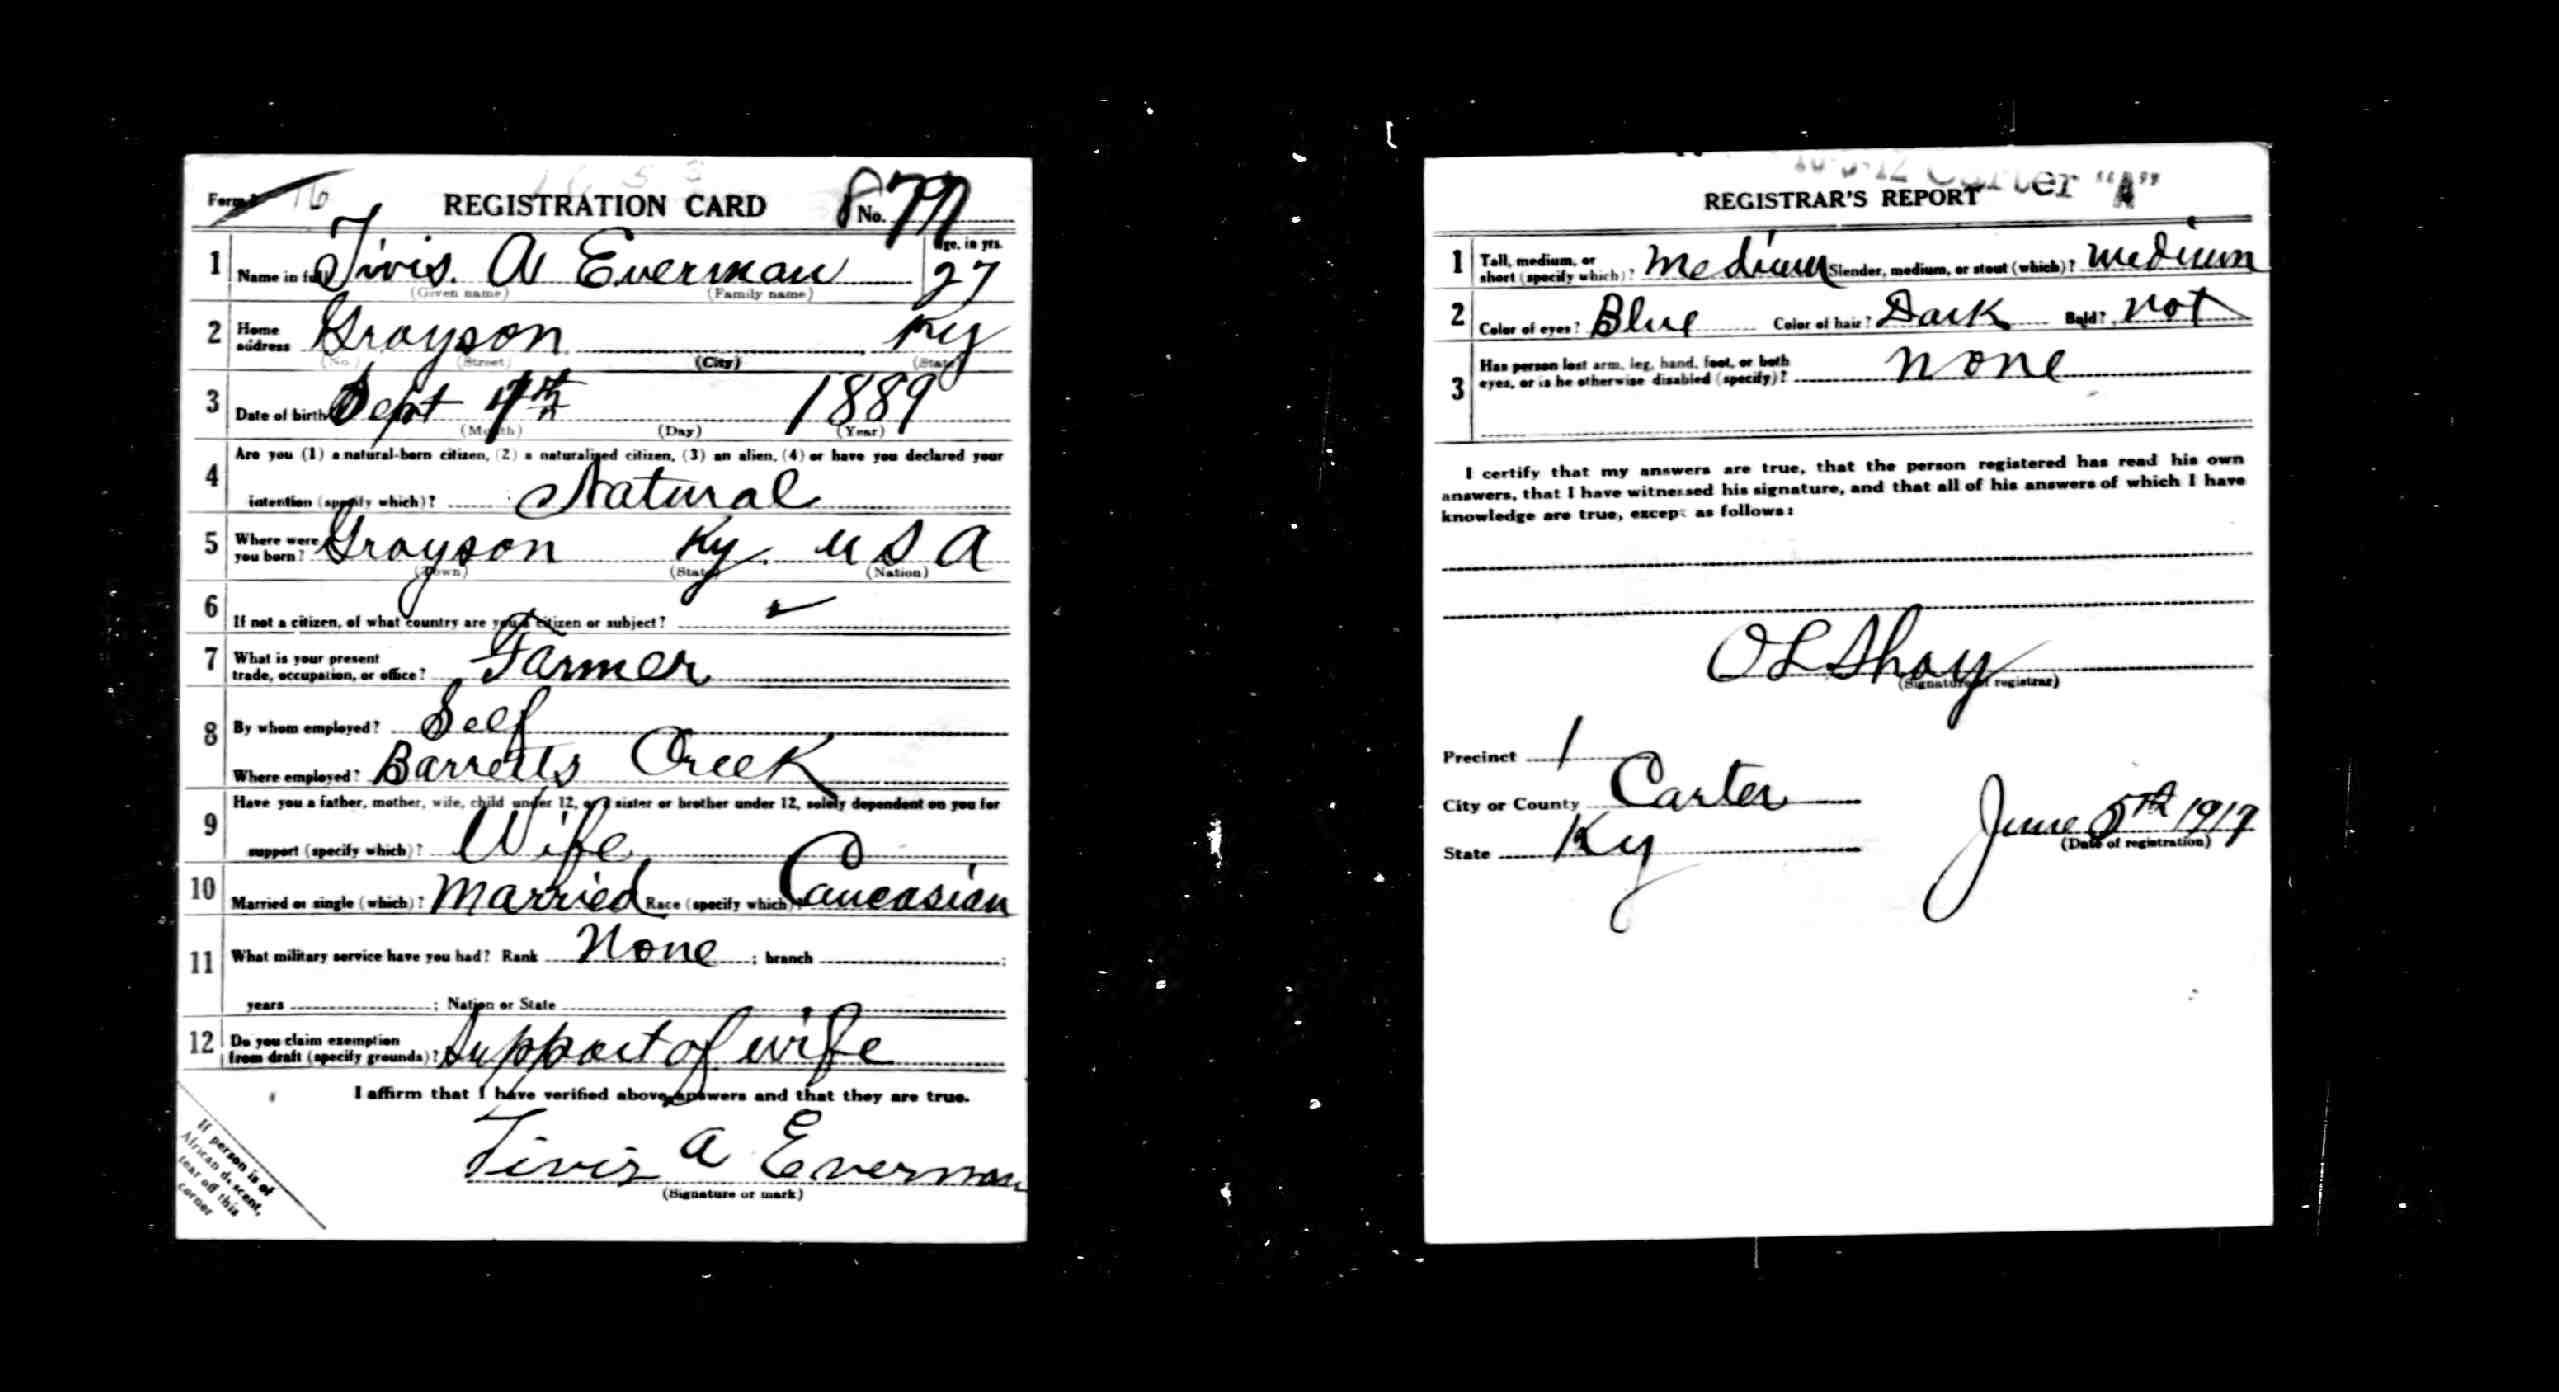 REGISTRATION CARD No.
1 Name in full Tivis. A Everman Age, in yrs. 27
(Given name) (Family name)
2 Home address Grayson Ky
(No.) (Street) (City) (State)
3 Date of birth Sept 1889
(Month) (Day) (Year)
4 Are you (1) a natural-born citizen, (2) a naturalized citizen, (3) an alien, (4) or have you declared your
intention (specify which)? Natural
5 Where were you born? Grayson Ky. U S A
(Town) (State) (Nation)
6 If not a citizen, of what country are you a citizen or subject?
7 What is your present trade, occupation, or office? Farmer
8 By whom employed? Self
Where employed? Barretts Creek
9 Have you a father, mother, wife, child under 12, or a sister or brother under 12, solely dependent on you for
support (specify which)? Wife
10 Married or single (which)? Married Race (specify which)? Caucasian
11 What military service have you had? Rank None ; branch ;
years ; Nation or State
12 Do you claim exemption from draft (specify grounds)? Support of wife
I affirm that I have verified above answers and that they are true.
Tivis A Everman
(Signature or mark)
If person is of
African descent,
tear off this
corner
Carter "A"
REGISTRAR'S REPORT
1 Tall, medium, or short (specify which)? Medium Slender, medium, or stout (which)? Medium
2 Color of eyes? Blue Color of hair? Dark Bald? Not
3 Has person lost arm, leg, hand, foot, or both eyes, or is he otherwise disabled (specify)? None
I certify that my answers are true, that the person registered has read his own
answers, that I have witnessed his signature, and that all of his answers of which I have
knowledge are true, except as follows:
O L Shay
(Signature of registrar)
Precinct 1
City or County Carter
State Ky
June 5th 1917
(Date of registration)